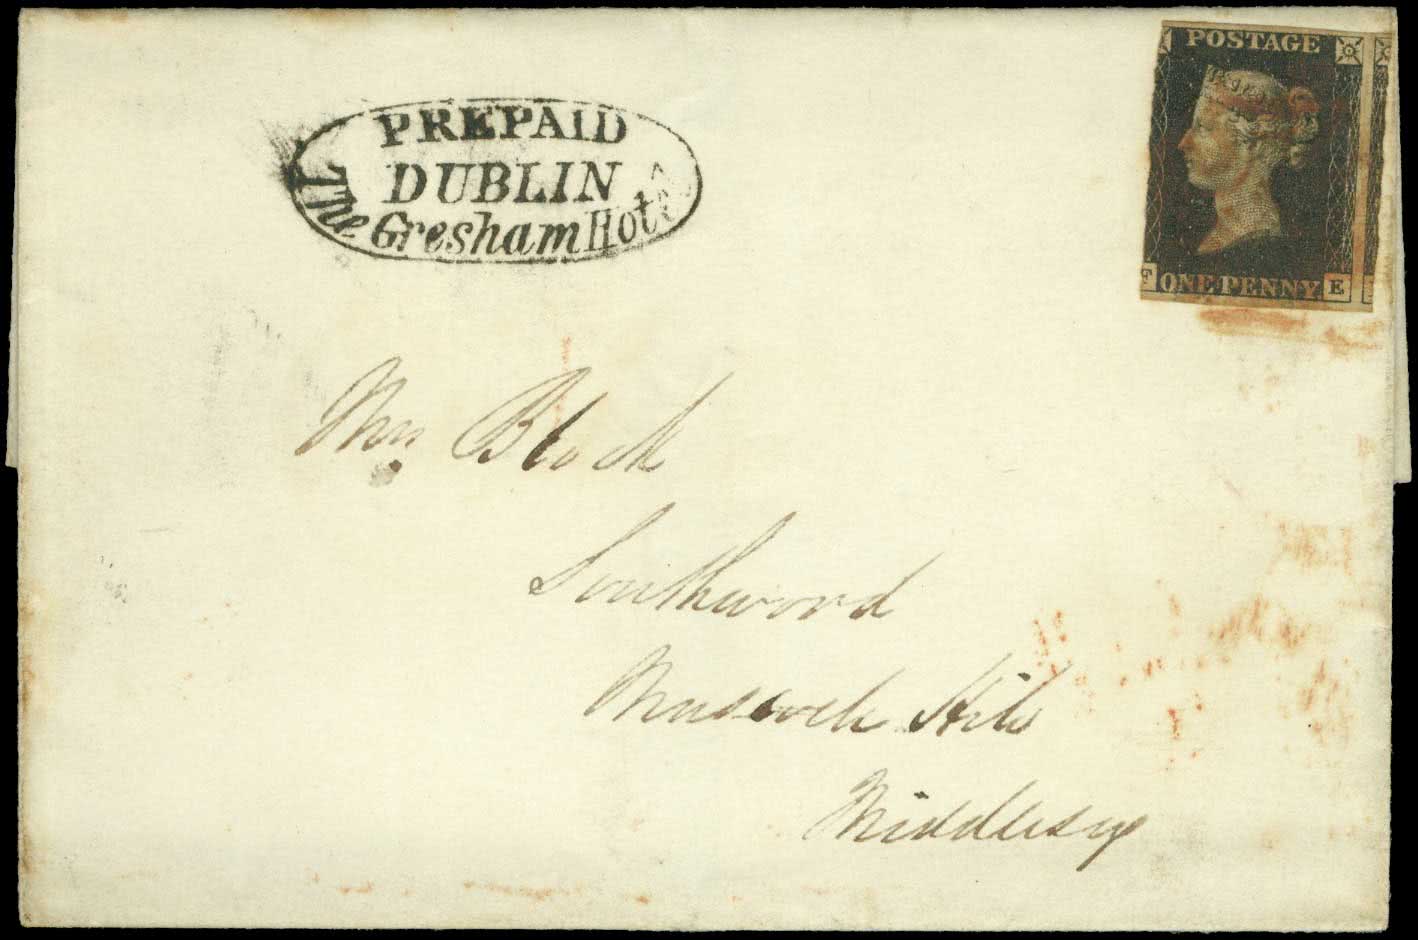 PREPAID
DUBLIN
The Gresham Hotel
POSTAGE
F ONE PENNY E
Mrs Block
Southwood
Muswell Hill
Middlesex